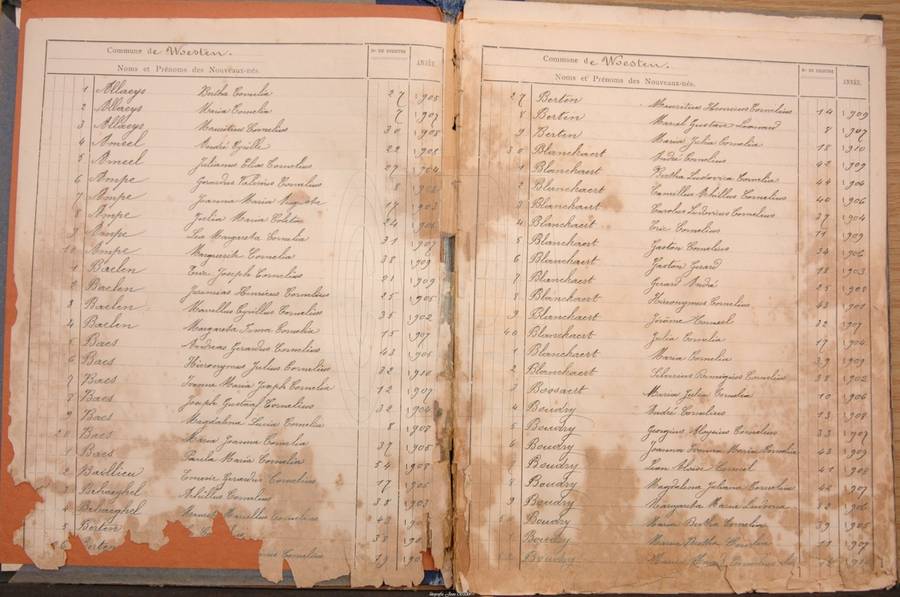 Commune de Woesten.
Noms et Prénoms des Nouveaux-nés.
ANNÉE
1 Allaeys Bertha Cornelia 27 1905
2 Allaeys Maria Cornelia 7 1907
3 Allaeys Mauritius Cornelius 30 1908
4 Ameel André Cyrille 22 1908
5 Ameel Julianus Elias Cornelius 27 1904
6 Ampe Gerardus Valerius Cornelius 8
7 Ampe Joanna Maria Augusta 17 1903
8 Ampe Julia Maria Coleta 24
9 Ampe Lea Margareta Cornelia 31 1907
10 Ampe Marguerite Cornelia 38 1909
1 Baelen Eric Joseph Cornelius 21 1909
2 Baelen Jeremias Henricus Cornelius 25 1905
3 Baelen Marcellus Cyrillus Cornelius 35 1902
4 Baelen Margareta Irma Cornelia 15 1907
5 Baes Andreas Gerardus Cornelius 43
6 Baes Hieronymus Julius Cornelius 32 1910
7 Baes Ivonna Maria Joseph Cornelia 12 1907
8 Baes Joseph Gustaaf Cornelius 32 1904
9 Baes Magdalena Lucia Cornelia 8 1908
20 Baes Maria Joanna Cornelia 37 1905
1 Baes Paula Maria Cornelia 54 1908
2 Baillieu Gerardus Cornelius 17 1906
3 Behaeghel Achilles Cornelius 38 1903
4 Behaeghel Marcellus Cornelius 43
5 Berten 38
6 Berten Cornelius 19
Commune de Woesten.
Noms et Prénoms des Nouveaux-nés.
ANNÉE.
27 Berten Mauritius Henricus Cornelius 14 1909
8 Berten Marcel Gustave Leonard 8 1907
9 Berten Maria Julia Cornelia 18 1910
30 Blanckaert André Cornelius 42 1909
1 Blanckaert Bertha Ludovica Cornelia 44 1904
2 Blanckaert Camillus Achillus Cornelius 40 1906
3 Blanckaert Carolus Ludovicus Cornelius 37 1904
4 Blanckaert Eric Cornelius 11 1909
5 Blanckaert Gaston Cornelius 34 1906
6 Blanckaert Gaston Gerard 18 1903
7 Blanckaert Gerard André 25 1908
8 Blanckaert Hieronymus Cornelius 43 1901
9 Blanckaert Jérôme 32 1907
40 Blanckaert Julia Cornelia 17 1904
1 Blanckaert Maria Cornelia 39 1909
2 Blanckaert Silverius Remigius Cornelius 38 1902
3 Bossaert Maria Julia Cornelia 10 1906
4 Boudry André Cornelius 13 1908
5 Boudry Georgius Aloysius Cornelius 33 1907
6 Boudry Joanna Maria Cornelia 43 1909
7 Boudry 41 1908
8 Boudry Magdalena Juliana Cornelia 42 1907
9 Boudry Margareta Maria Ludovica 1906
Boudry Maria Bertha Cornelia 39 1905
1 Boudry Maria Bertha 18 1909
Boudry Maria 12